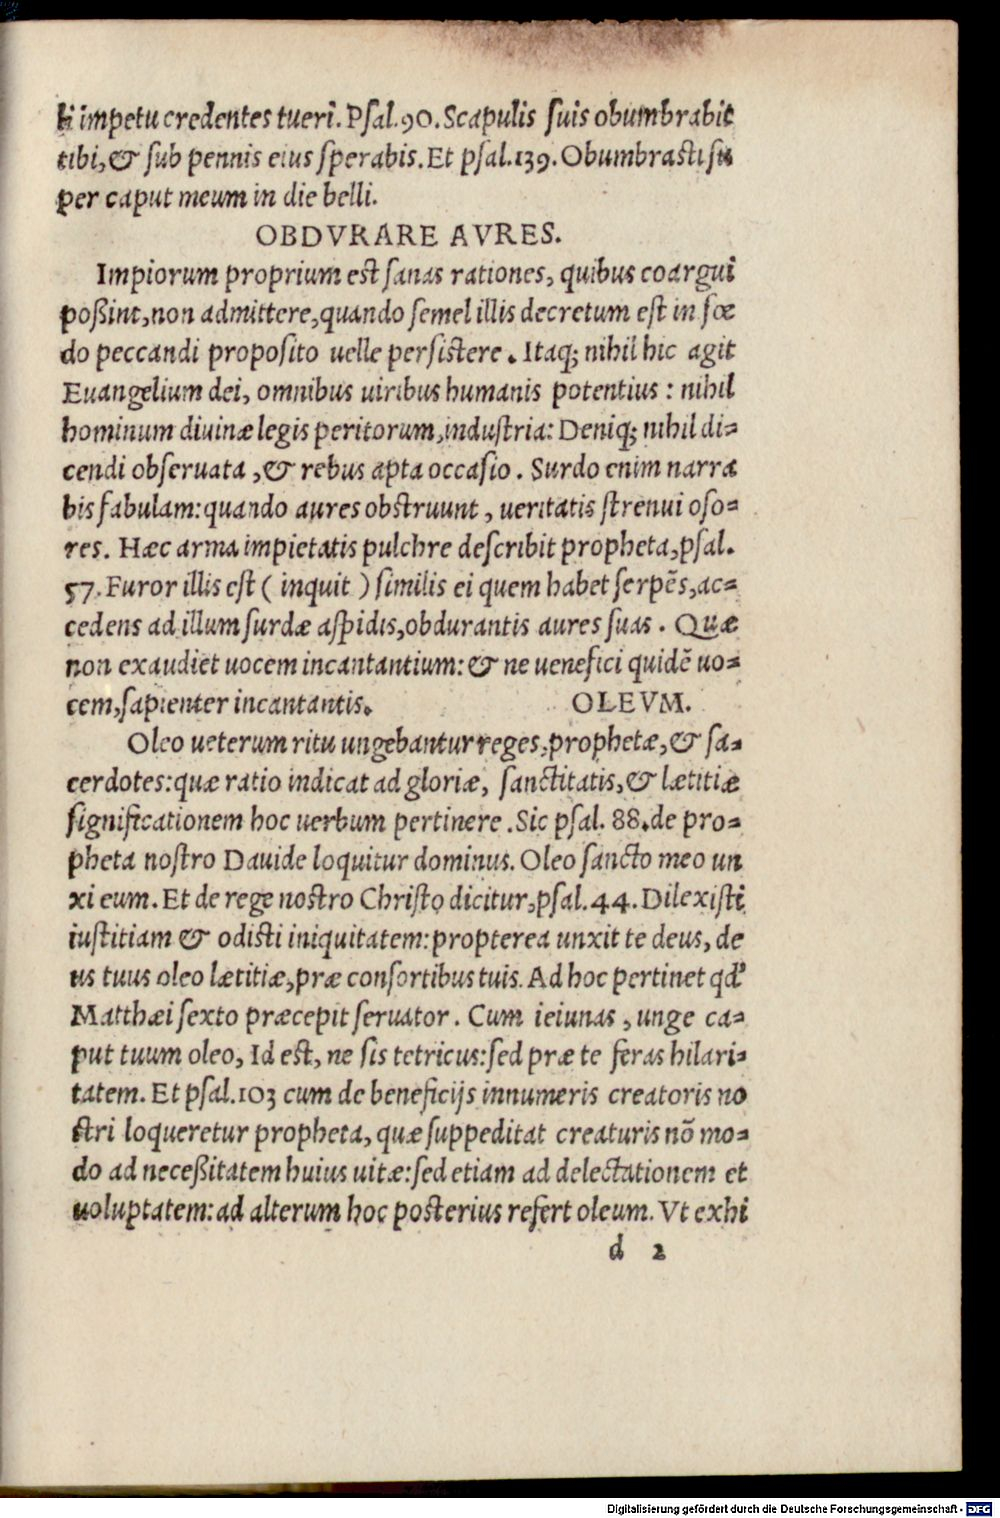 li impetu credentes tueri. Psal.90. Scapulis suis obumbrabit
tibi, & sub pennis eius sperabis. Et psal.139. Obumbrasti su
per caput meum in die belli.
OBDVRARE AVRES.
Impiorum proprium est sanas rationes, quibus coargui
poßint, non admittere, quando semel illis decretum est in fœ
do peccandi proposito uelle persistere. Itaq; nihil hic agit
Euangelium dei, omnibus uiribus humanis potentius: nihil
hominum diuinæ legis peritorum, industria: Deniq; nihil di=
cendi obseruata, & rebus apta occasio. Surdo enim narra
bis fabulam: quando aures obstruunt, ueritatis strenui oso=
res. Hæc arma impietatis pulchre describit propheta, psal.
57. Furor illis est ( inquit ) similis ei quem habet serpẽs, ac=
cedens ad illum surdæ aspidis, obdurantis aures suas. Quæ
non exaudiet uocem incantantium: & ne uenefici quidẽ uo=
cem, sapienter incantantis. OLEVM.
Oleo ueterum ritu ungebantur reges, prophetæ, & sa=
cerdotes: quæ ratio indicat ad gloriæ, sanctitatis, & lætitiæ
significationem hoc uerbum pertinere. Sic psal. 88. de pro=
pheta nostro Dauide loquitur dominus. Oleo sancto meo un
xi eum. Et de rege nostro Christo dicitur, psal.44. Dilexisti
iustitiam & odisti iniquitatem: propterea unxit te deus, de
us tuus oleo lætitiæ, præ consortibus tuis. Ad hoc pertinet qd'
Matthæi sexto præcepit seruator. Cum ieiunas, unge ca=
put tuum oleo, Id est, ne sis tetricus: sed præ te feras hilari=
tatem. Et psal.103 cum de beneficijs innumeris creatoris no
stri loqueretur propheta, quæ suppeditat creaturis nõ mo=
do ad neceßitatem huius uitæ: sed etiam ad delectationem et
uoluptatem: ad alterum hoc posterius refert oleum. Vt exhi
d 2
Digitalisierung gefördert durch die Deutsche Forschungsgemeinschaft - DFG